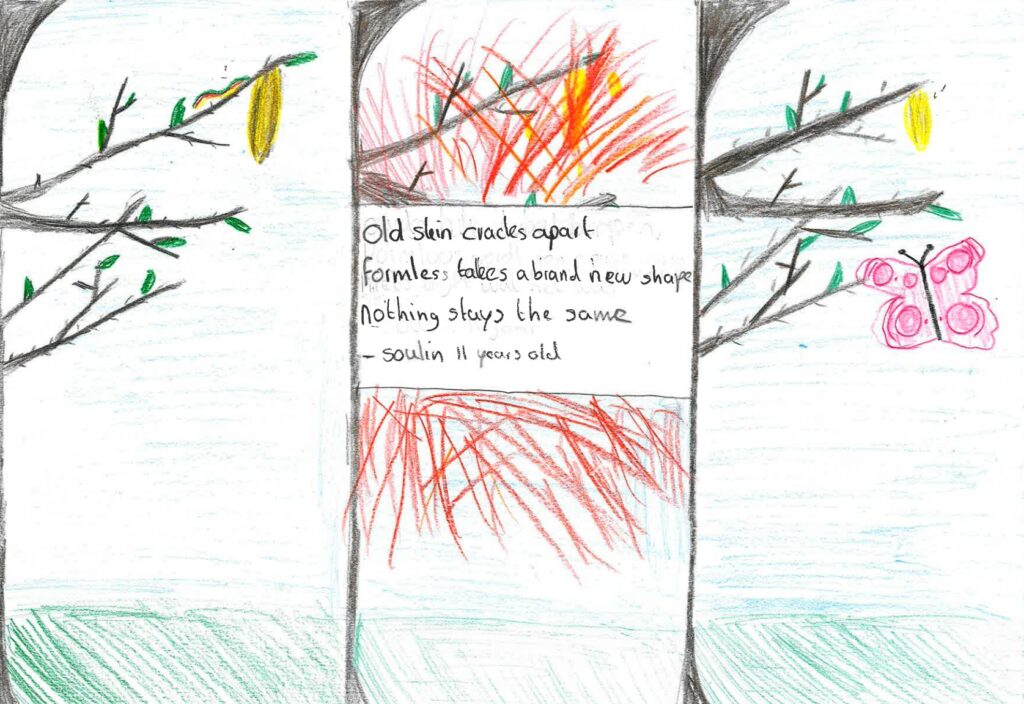 Old skin cracks apart
formless takes a brand new shape
nothing stays the same
- soulin 11 years old